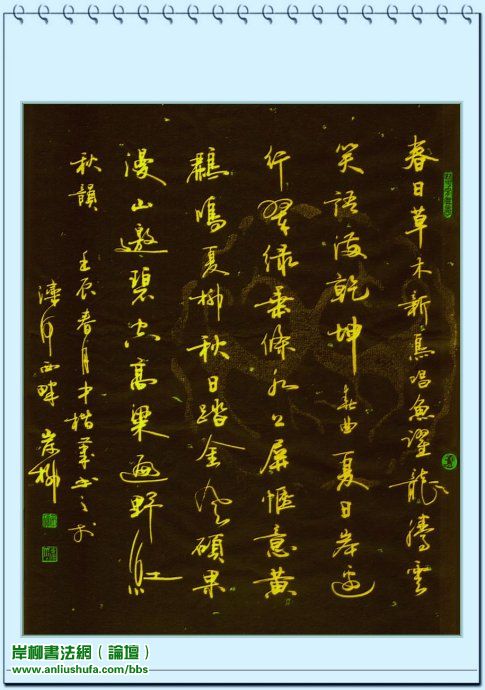 春日草木新鳥唱魚躍龍騰雲
笑語滿乾坤 春曲 夏日岸邊
行翠绿垂條水上屏惬意黄
鸝鳴夏柳秋日踏金風碩果
漫山邀碧空高粱遍野紅
秋韻 壬辰春月 楷筆書之於
灤河西畔 岸柳
岸柳書法網（論壇）
www.anliushufa.com/bbs